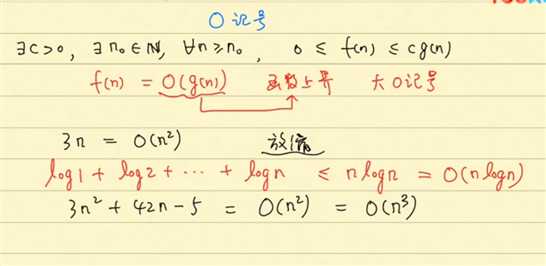 O 记号
∃c>0, ∃n₀∈ℕ, ∀n≥n₀, 0 ≤ f(n) ≤ cg(n)
f(n) = O(g(n)) 函数上界 大O记号
3n = O(n²) 放缩
log1 + log2 + ··· + logn ≤ nlogn = O(nlogn)
3n² + 42n - 5 = O(n²) = O(n³)